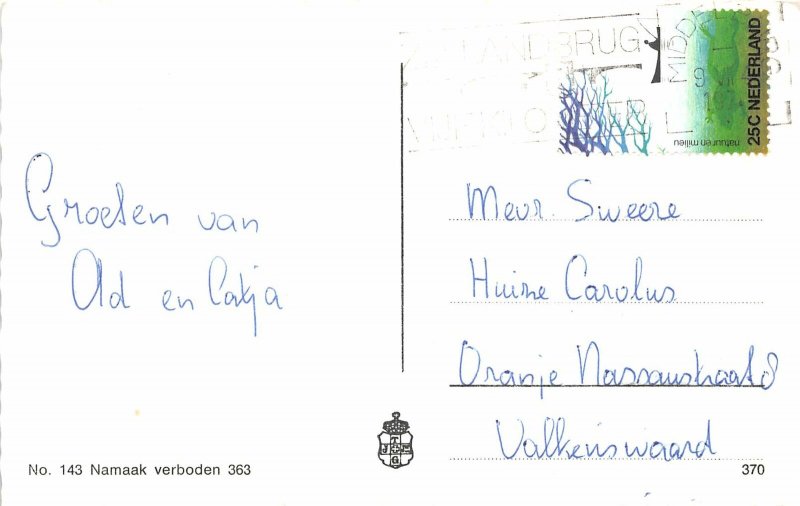 ZEELANDBRUG
MIDDEL
25C NEDERLAND
natuur en milieu
Groeten van
Ad en Catja
Mevr. Sweere
Huize Carolus
Oranje Nassaustraat 8
Valkenswaard
No. 143 Namaak verboden 363
370